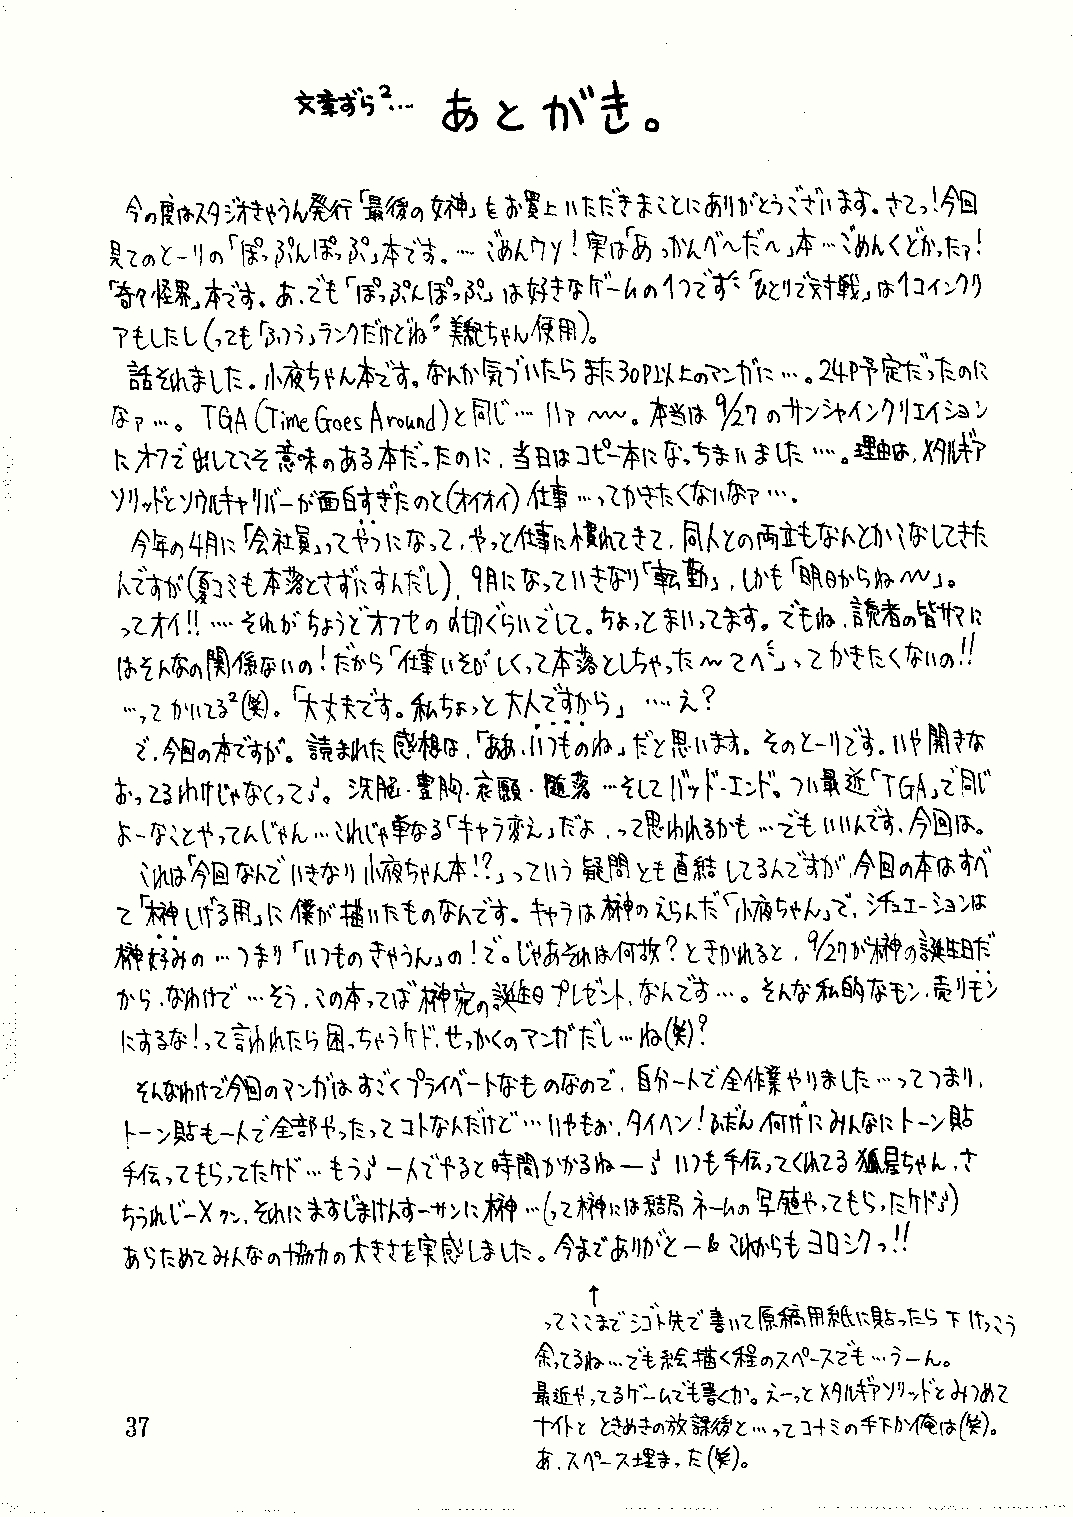 文章ずら²… あとがき。
今の度はスタジオきゃうん発行「最後の女神」をお買上いただきまことにありがとうございます。さてっ!今回
見てのとーりの「ぽっぷんぽっぷ」本です。…ごめんウソ!実は「あっかんべ〜だ〜」本…ごめんくどかったァ!
「奇々怪界」本です。あ、でも「ぽっぷんぽっぷ」は好きなゲームの1つです「ひとりで対戦」は1コインクリ
アもしたし(っても「ふつう」ランクだけどね 美貌ちゃん使用)。
話それました。小夜ちゃん本です。なんか気づいたらまた30P以上のマンガに…。24P予定だったのに
なァ…。TGA(Time Goes Around)と同じ…ハァ〜〜。本当は9/27のサンシャインクリエイション
にオフで出してこそ意味のある本だったのに、当日はコピー本になっちまいました…。理由は、メタルギア
ソリッドとソウルキャリバーが面白すぎたのと(オイオイ)仕事…ってかきたくないなァ….
今年の4月に「会社員」ってやつになって、やっと仕事に慣れてきて、同人との両立もなんとかこなしてきた
んですが(夏コミも本落とさずにすんだし)、9月になっていきなり「転勤」、しかも「明日からね〜」。
ってオイ!!…それがちょうどオフセの〆切ぐらいでして。ちょっとまいってます。でもね、読者の皆サマに
はそんなの関係ないの!だから「仕事いそがしくって本落としちゃった〜てへ」ってかきたくないの!!
…ってかいてる²(笑)。「大丈夫です。私ちょっと大人ですから」…え?
で、今回の本ですが。読まれた感想は、「ああ、いつものね」だと思います。そのとーりです。いや開きな
おってるわけじゃなくって♪。洗脳・豊胸・哀願・堕落…そしてバッド・エンド。つい最近「TGA」で同じ
よーなことやってんじゃん…これじゃ単なる「キャラ変え」だよ、って思われるかも…でもいいんです、今回は。
これは「今回なんでいきなり小夜ちゃん本!?」っていう疑問とも直結してるんですが、今回の本はすべ
て「榊しげる用」に僕が描いたものなんです。キャラは榊のえらんだ「小夜ちゃん」で、シチュエーションは
榊好みの…つまり「いつものきゃうん」の!で。じゃあそれは何故?ときかれると、9/27が榊の誕生日だ
から、なわけで…そう、この本ってば榊宛の誕生日プレゼント、なんです…。そんな私的なモン、売りモン
にするな!って言われたら困っちゃうケド、せっかくのマンガだし…ね(笑)?
そんなわけで今回のマンガはすごくプライベートなものなので、自分一人で全作業やりました…ってつまり、
トーン貼も一人で全部やったってコトなんだけど…いやもお、タイヘン!ふだん何げにみんなにトーン貼
手伝ってもらってたケド…もう♪一人でやると時間かかるねー♪いつも手伝ってくれてる狐星ちゃん、さ
ちうれじーXクン、それにますじまけんすーサンに榊…(って榊には結局ネームの写植やってもらったケド♪)
あらためてみんなの協力の大きさを実感しました。今までありがとー&これからもヨロシクっ!!
↑
ってここまでシゴト先で書いて原稿用紙に貼ったら下けっこう
余ってるね…でも絵描く程のスペースでも…うーん。
最近やってるゲームでも書くか。えーっとメタルギアソリッドとみつめて
ナイトとときめきの放課後と…ってコナミの手下か俺は(笑)。
あ、スペース埋まった(笑)。
37